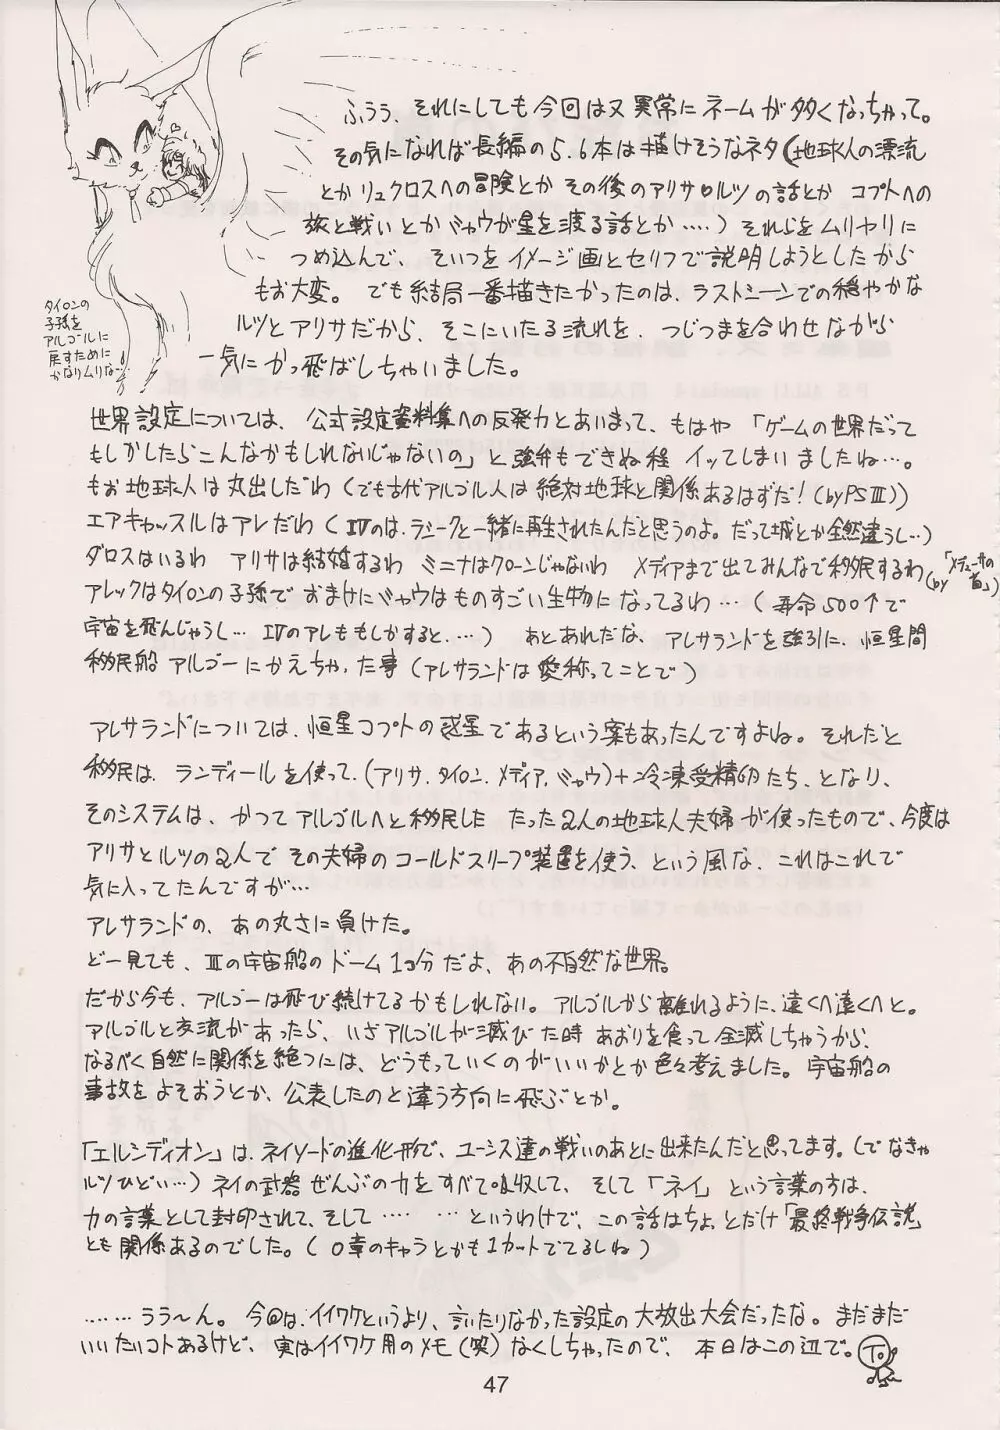 ふうぅ、それにしても今回は又異常にネームが多くなっちゃって。
その気になれば長編の5.6本は描けそうなネタ(地球人の漂流
とかリュクロスへの冒険とかその後のアリサ・ルツの話とか コプトへの
旅と戦いとかミャウが星を渡る話とか‥‥)それらをムリヤリに
つめ込んで、そいつをイメージ画とセリフで説明しようとしたから
もお大変。でも結局一番描きたかったのは、ラストシーンでの穏やかな
ルツとアリサだから、そこにいたる流れを、つじつまを合わせながら
一気にかっ飛ばしちゃいました。
タイロンの
子孫を
アルゴールに
戻すために
かなりムリな…!
世界設定については、公式設定資料集への反発力とあいまって、もはや「ゲームの世界だって
もしかしたらこんなかもしれないじゃないの」と強弁もできぬ程 イッてしまいましたね…。
もお地球人は丸出しだわ(でも古代アルゴル人は絶対地球と関係あるはずだ!(byPSⅢ))
エアキャッスルはアレだわ(Ⅳのは、ラシークと一緒に再生されたんだと思うのよ。だって城とか全然違うし…)
ダロスはいるわ アリサは結婚するわ ミニナはクローンじゃないわ メディアまで出てみんなで移民するわ(by「メデューサの首」)
アレックはタイロンの子孫で おまけにミャウはものすごい生物になってるわ…(寿命500↑で
宇宙を飛んじゃうし… Ⅳのアレももしかすると‥‥)あとあれだな、アレサランドを強引に、恒星間
移民船アルゴーにかえちゃった事(アレサランドは愛称ってことで)
アレサランドについては、恒星コプトの惑星であるという案もあったんですよね。それだと
移民は、ランディールを使って、(アリサ.タイロン.メディア.ミャウ)+冷凍受精卵たち、となり、
そのシステムは、かつてアルゴルへと移民した たった2人の地球人夫婦が使ったもので、今度は
アリサとルツの2人で その夫婦のコールドスリープ装置を使う、という風な、これはこれで
気に入ってたんですが…
アレサランドの、あの丸さに負けた。
どー見ても、Ⅲの宇宙船のドーム1コ分だよ、あの不自然な世界。
だから今も、アルゴーは飛び続けてるかもしれない。アルゴルから離れるように、遠くへ遠くへと。
アルゴルと交流があったら、いざアルゴルが滅びた時あおりを食って全滅しちゃうから、
なるべく自然に関係を絶つには、どうもっていくのがいいかとか色々考えました。宇宙船の
事故をよそおうとか、公表したのと違う方向に飛ぶとか。
「エルシディオン」は、ネイソードの進化形で、ユーシス達の戦いのあとに出来たんだと思ってます。(でなきゃ
ルツひどい…)ネイの武器ぜんぶの力をすべて吸収して、そして「ネイ」という言葉の方は、
力の言葉として封印されて、そして‥‥ …というわけで、この話はちょっとだけ「最終戦争伝説」
とも関係あるのでした。(0章のキャラとかも1カットででてるしね)
‥‥‥うう〜ん。今回は、イイワケというより、言いたりなかった設定の大放出大会だったな。まだまだ
いいたいコトあるけど、実はイイワケ用のメモ(笑)なくしちゃったので、本日はこの辺で。To
47